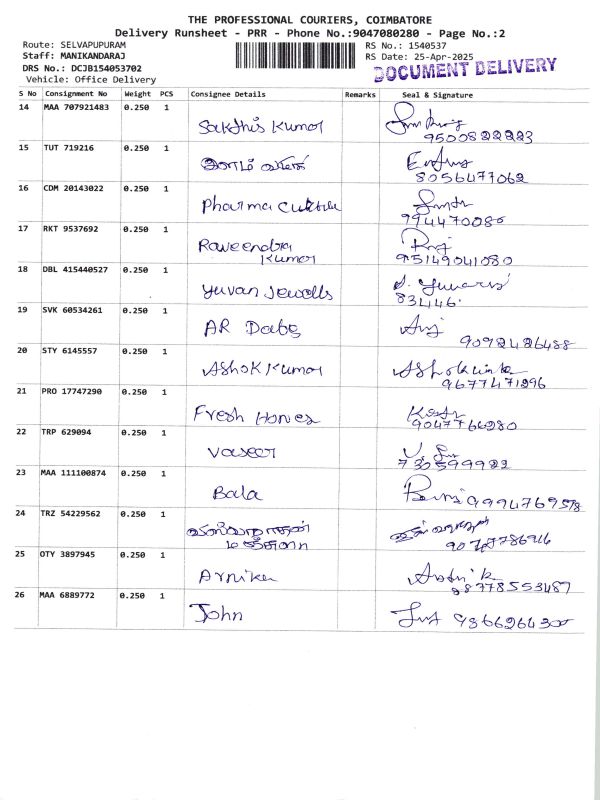 THE PROFESSIONAL COURIERS, COIMBATORE
Delivery Runsheet - PRR - Phone No.:9047080280 - Page No.:2
Route: SELVAPUPURAM
Staff: MANIKANDARAJ
DRS No.: DCJB154053702
Vehicle: Office Delivery
RS No.: 1540537
RS Date: 25-Apr-2025
DOCUMENT DELIVERY
S No Consignment No Weight PCS Consignee Details Remarks Seal & Signature
14 MAA 707921483 0.250 1
Sakthis Kumar
9500822223
15 TUT 719216 0.250 1
8056477062
16 CDM 20143022 0.250 1
Pharma
994470080
17 RKT 9537692 0.250 1
Raveendra Raj
Kumar 95149041080
18 DBL 415440527 0.250 1
Yuvan Jewells
831446
19 SVK 60534261 0.250 1
AR
9092426488
20 STY 6145557 0.250 1
Ashok Kumar
9677471296
21 PRO 17747290 0.250 1
Fresh Hones
9047766280
22 TRP 629094 0.250 1
Vaseer
730599922
23 MAA 111100874 0.250 1
Bala 9994769578
24 TRZ 54229562 0.250 1
25 OTY 3897945 0.250 1
Arnika
26 MAA 6889772 0.250 1
John 9366264300